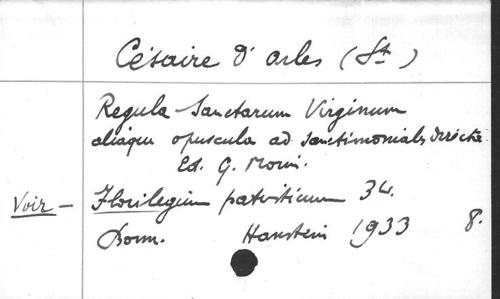 Césaire d'Arles (St)
Regula Sanctarum Virginum
aliaque opuscula ad sanctimoniales directa
Ed. G. Morin.
Voir — Florilegium patristicum 34.
Bonn. Hanstein 1933 8.